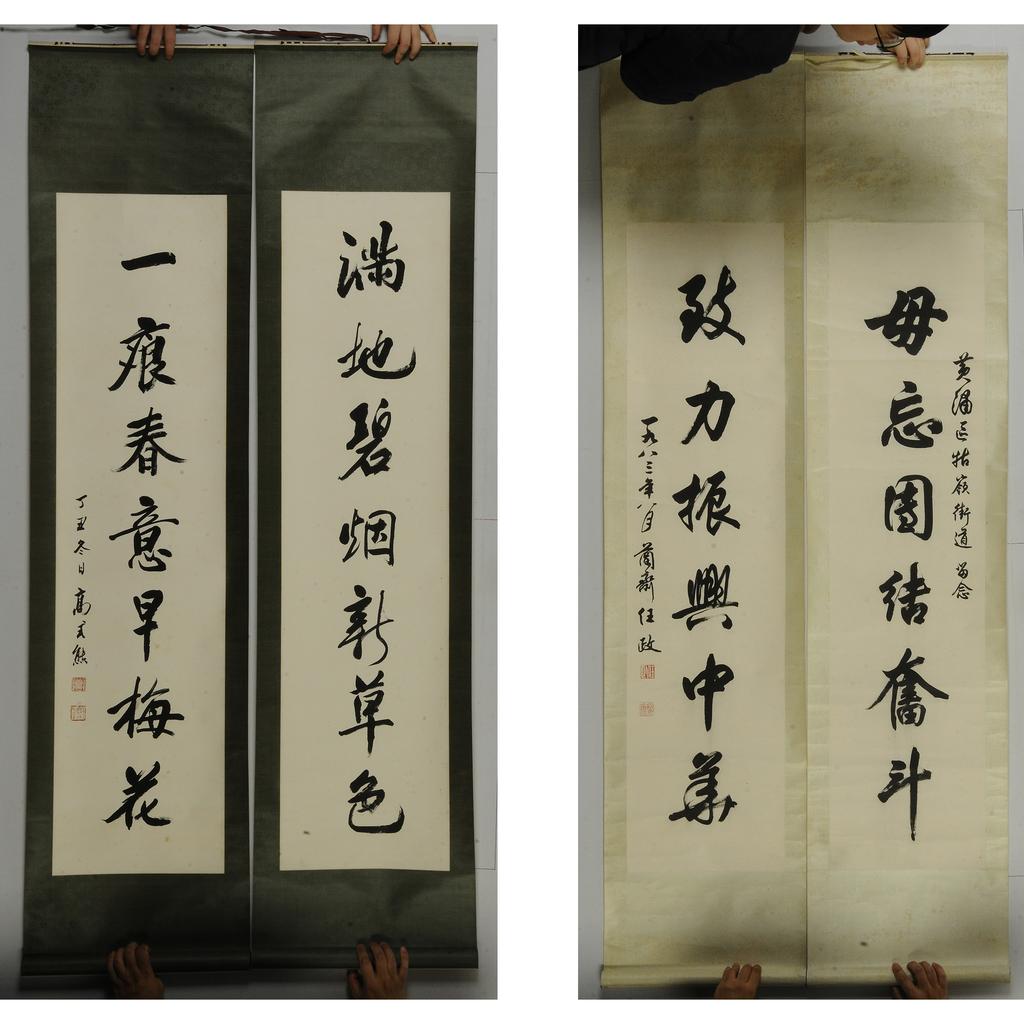 满地碧烟新草色
一痕春意早梅花
丁丑冬日 高式熊
黄浦区牯岭街道 留念
毋忘团结奋斗
致力振兴中华
一九八三年八月 兰斋任政